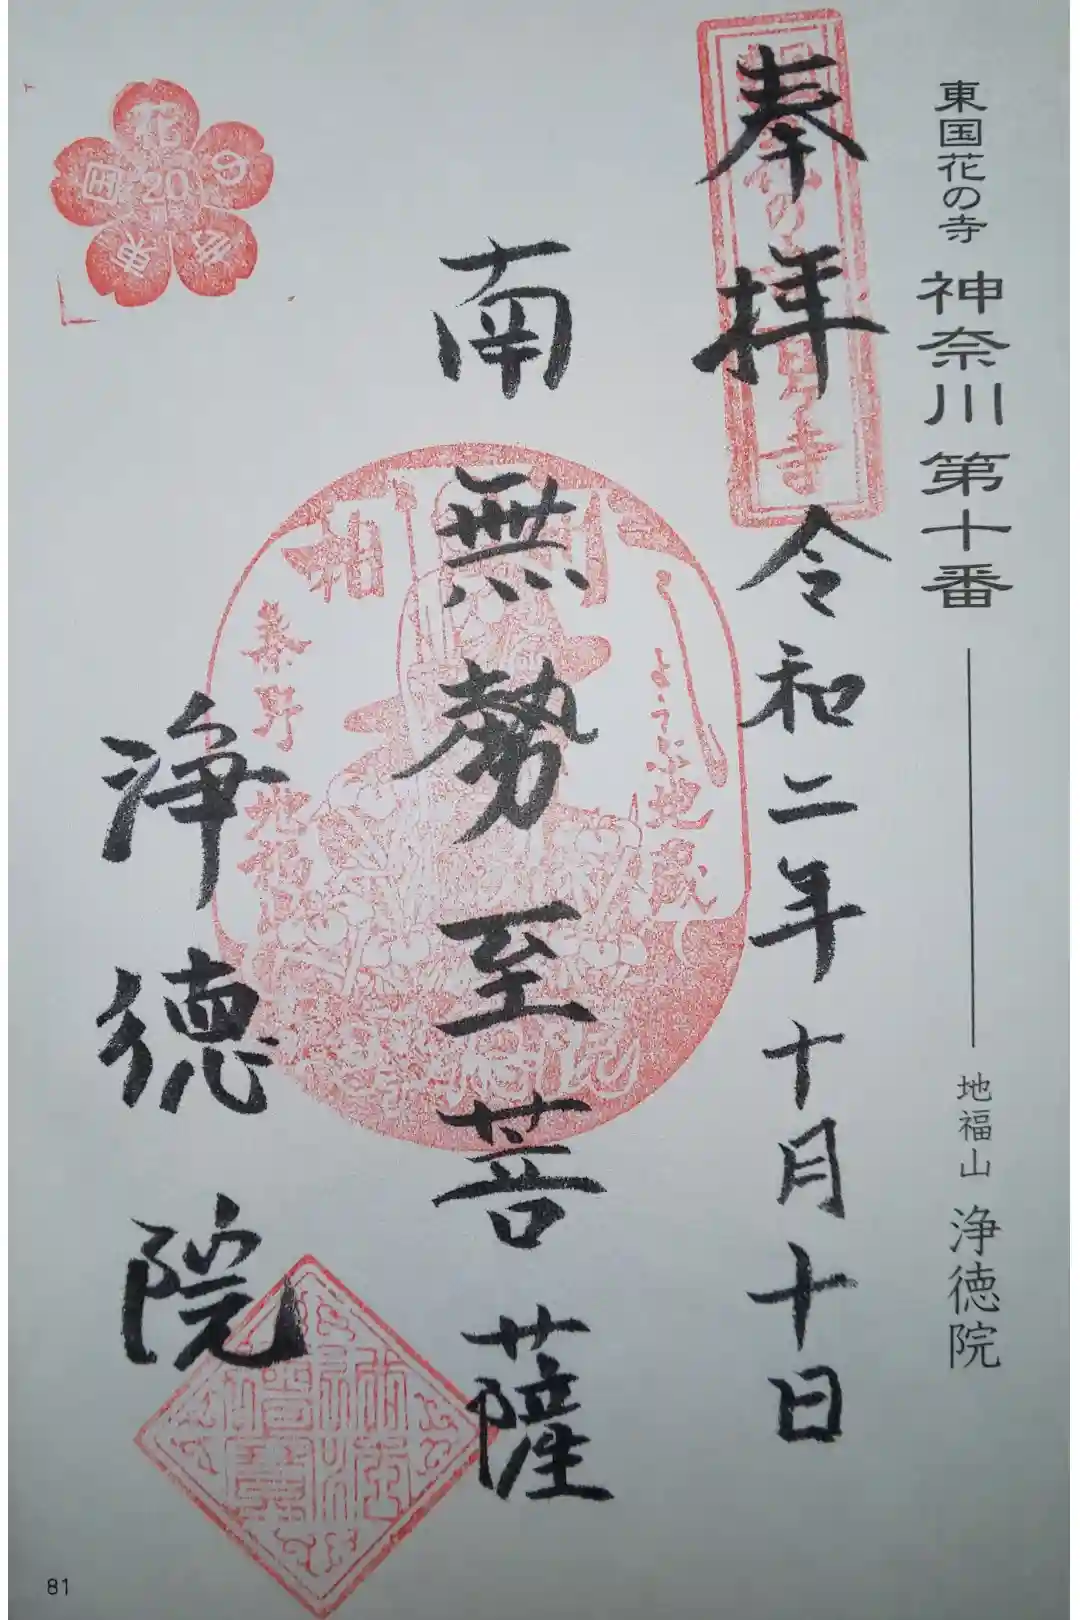 東国花の寺 神奈川第十番 地福山 浄徳院
奉拝 令和二年十月十日
南無勢至菩薩
浄徳院
花の寺 東国
20
相州
秦野
地福
地蔵
81